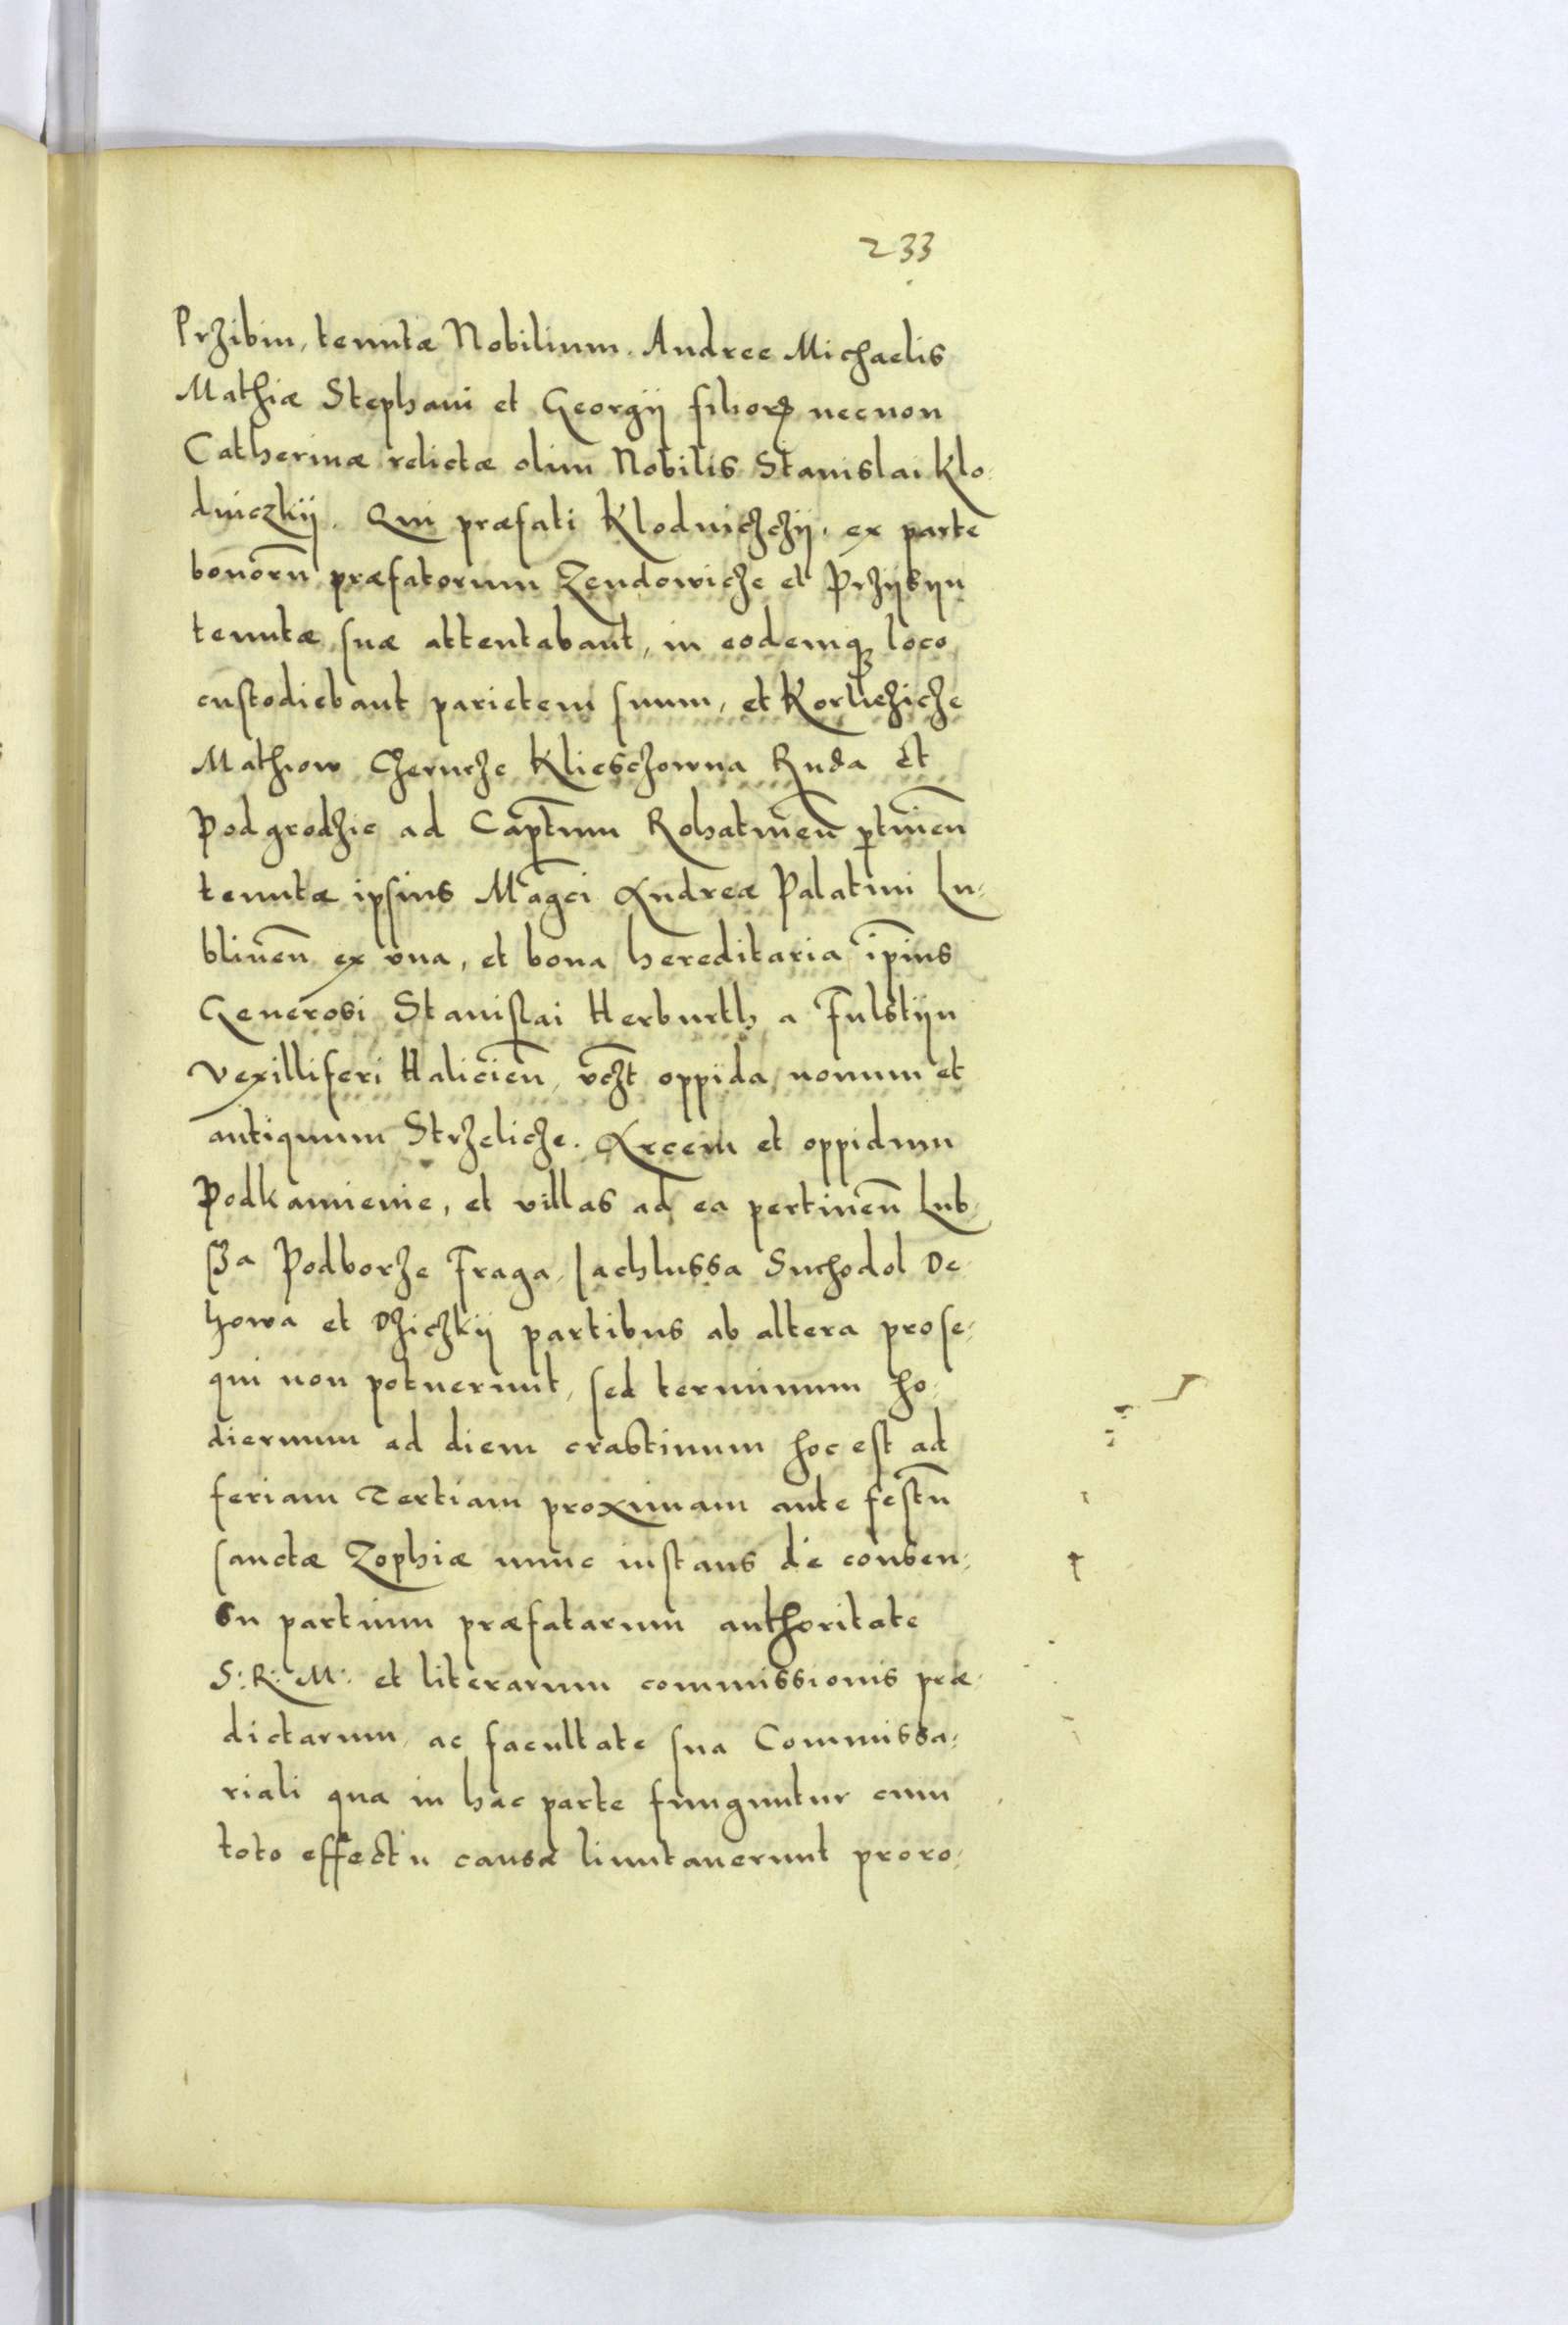 233
Przibin, tenutæ Nobilium. Andree Michaelis
Mathiæ Stephani et Georgij filiorꝝ necnon
Catherinæ relictæ olim Nobilis Stanislai Klo-
dniczkij. Qui præfati Klodniczczij, ex parte
bonorū præfatorum Zendowicze et Przijbijn
tenutæ suæ attentabant, in eodemqꝫ loco
custodiebant parietem suum, et Korliczicze
Mathiow Czerucze Klieschowna Ruda et
Podgrodzie ad Capt̄um Rohatineñ ꝑtineñ
tenutæ ipsius Mag̃ci Andreæ Palatini Lu-
blineñ ex vna, et bona hereditaria ip̃ius
Generosi Stanislai Herburth a Fulstijn
Vexilliferi Halicieñ, vcꝫt oppida nouum et
antiquum Strzelicze. Arcem et oppidum
Podkamienie, et villas ad ea pertineñ Lub-
sza Podborze Fraga, Jachlussa Suchodol De-
howa et Dziczkij partibus ab altera prose-
qui non potuerunt, sed terminum ho-
diernum ad diem crastinum hoc est ad
feriam Tertiam proximam ante festū
sanctæ Zophiæ nunc instans de consen-
su partium præfatarum authoritate
S: R: M: et literarum commissionis præ-
dictarum, ac facultate sua Commissa-
riali qua in hac parte funguntur cum
toto effectu causæ limitauerunt proro-